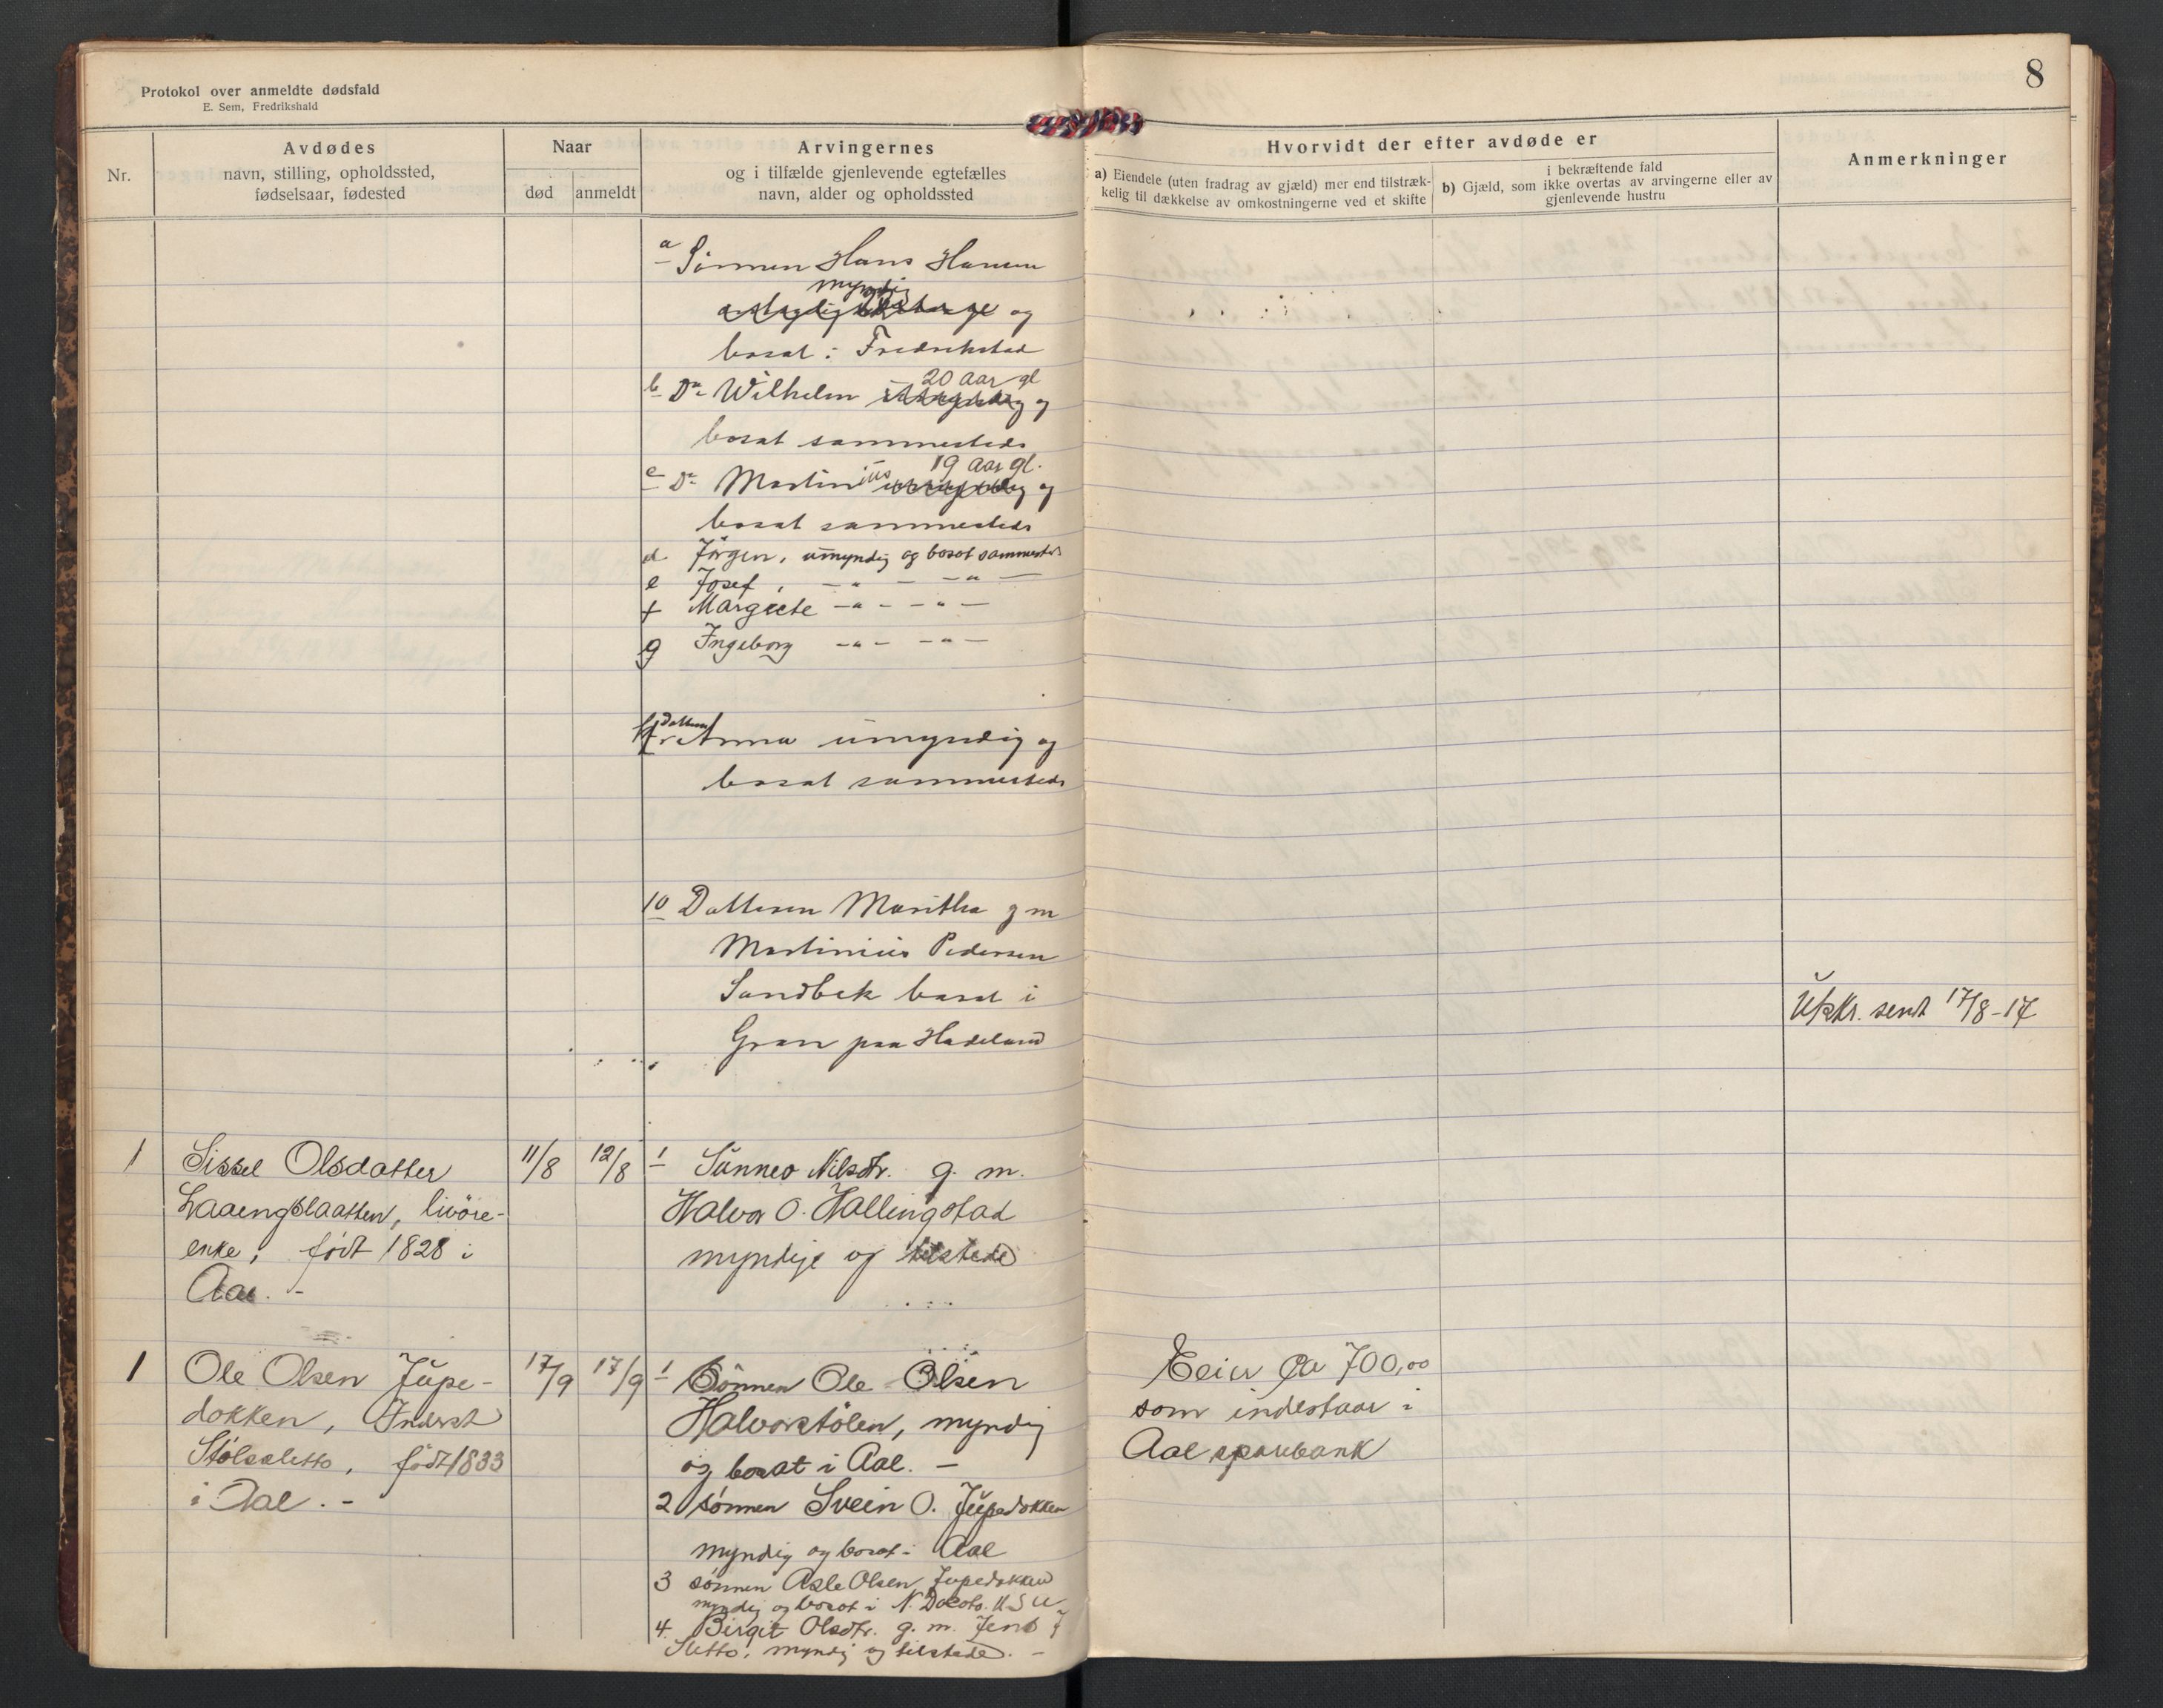 Protokol over anmeldte dødsfald
E. Sem, Fredrikshald
8
Nr.
Avdødes
navn, stilling, opholdssted,
fødselsaar, fødested
Naar
død
anmeldt
Arvingernes
og i tilfælde gjenlevende egtefælles
navn, alder og opholdssted
Hvorvidt der efter avdøde er
a) Eiendele (uten fradrag av gjæld) mer end tilstræk-
kelig til dækkelse av omkostningerne ved et skifte
i bekræftende fald
b) Gjæld, som ikke overtas av arvingerne eller av
gjenlevende hustru
Anmerkninger
a Sønnen Hans Hansen
myndig
og
bosat i Fredrikstad
20 aar gl
b Do Wilhelm og
bosat sammesteds
19 aar gl.
c Do Martinius og
bosat sammesteds
d. Jörgen, umyndig og bosat sammesteds
e Josef, -"- -"-
f Margrete -"- -"-
g Ingeborg -"- -"-
Datteren
Anna umyndig og
bosat sammesteds
10 Datteren Maritha g m
Martinius Pedersen
Sandbek bosat i
Gran paa Hadeland
Utskr. sendt 17/8-17
1 Sissel Olsdatter 11/8 12/8 1 Sunnev Nilsdtr. g. m.
Laaengslaatten, livöre- Halvor O. Hallingstad
enke, født 1828 i myndige og tilstede
Aal. -
1 Ole Olsen Jupe- 17/9 17/9 1 Sönnen Ole Olsen Eier ca 700,00
dokken, Inderst Halvorstölen, myndig som indestaar i
Stölssletto, född 1833 og bosat i Aal. - Aal sparebank
i Aal. - 2 sönnen Svein O. Jupedokken
myndig og bosat i Aal
3 sönnen Asle Olsen Jupedokken
myndig og bosat i N. Dacota. U S A
4. Birgit Olsdtr. g. m. Jens J
Sletto, myndig og tilstede. -